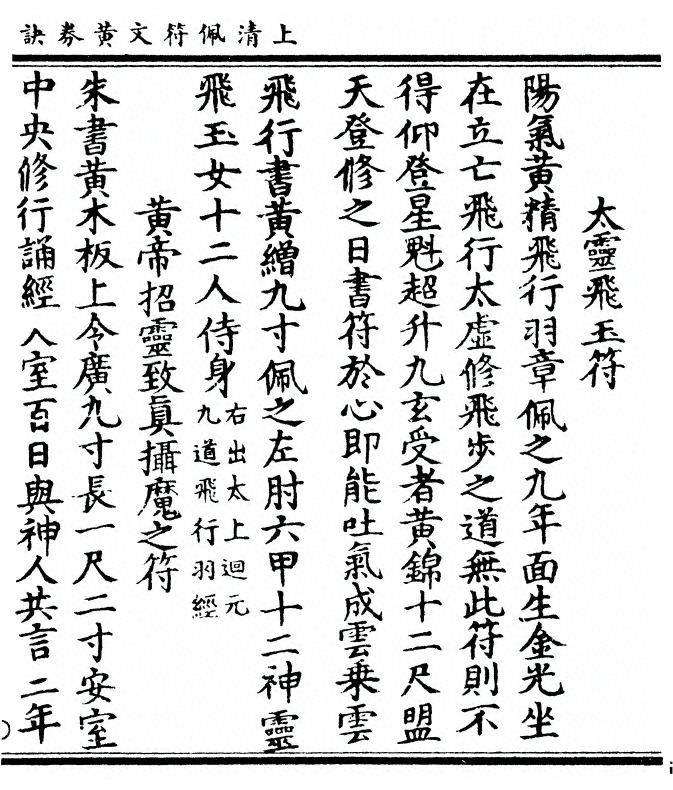 上清佩符文黃券訣
太靈飛玉符
陽氣黃精飛行羽章佩之九年面生金光坐
在立亡飛行太虛修飛步之道無此符則不
得仰登星魁超升九玄受者黃錦十二尺盟
天登修之日書符於心即能吐氣成雲乗雲
飛行書黃繒九寸佩之左肘六甲十二神靈
飛玉女十二人侍身
右出太上迴元
九道飛行羽經
黃帝招靈致真攝魔之符
朱書黃木板上令廣九寸長一尺二寸安室
中央修行誦經入室百日與神人共言二年